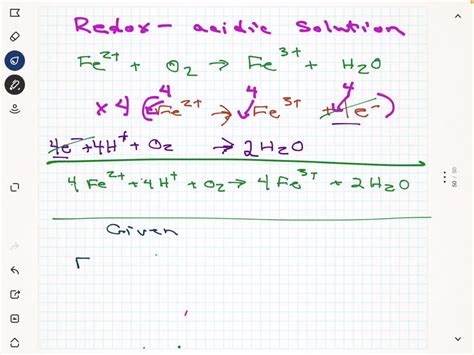 Redox - acidic solution
Fe²⁺ + O₂ → Fe³⁺ + H₂O
x4 (4Fe²⁺ → 4Fe³⁺ + 4 1e⁻)
4e⁻ + 4H⁺ + O₂ → 2H₂O
4Fe²⁺ + 4H⁺ + O₂ → 4Fe³⁺ + 2H₂O
Given